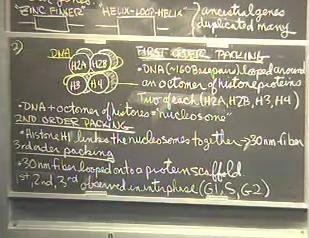 "ZINC FINGER" "HELIX-LOOP-HELIX" } ancestral genes
duplicated many
2) DNA FIRST ORDER PACKING
H2A H2B • DNA (~160 Bspairs) looped around
H3 H4 an octomer of histone proteins
Two of each (H2A, H2B, H3, H4)
• DNA + octomer of histones = "nucleosome"
2ND ORDER PACKING
• Histone H1 links the nucleosomes together → 30 nm fiber
3rd order packing
• 30nm fiber looped onto a protein scaffold
1st, 2nd, 3rd observed in interphase (G1, S, G2)